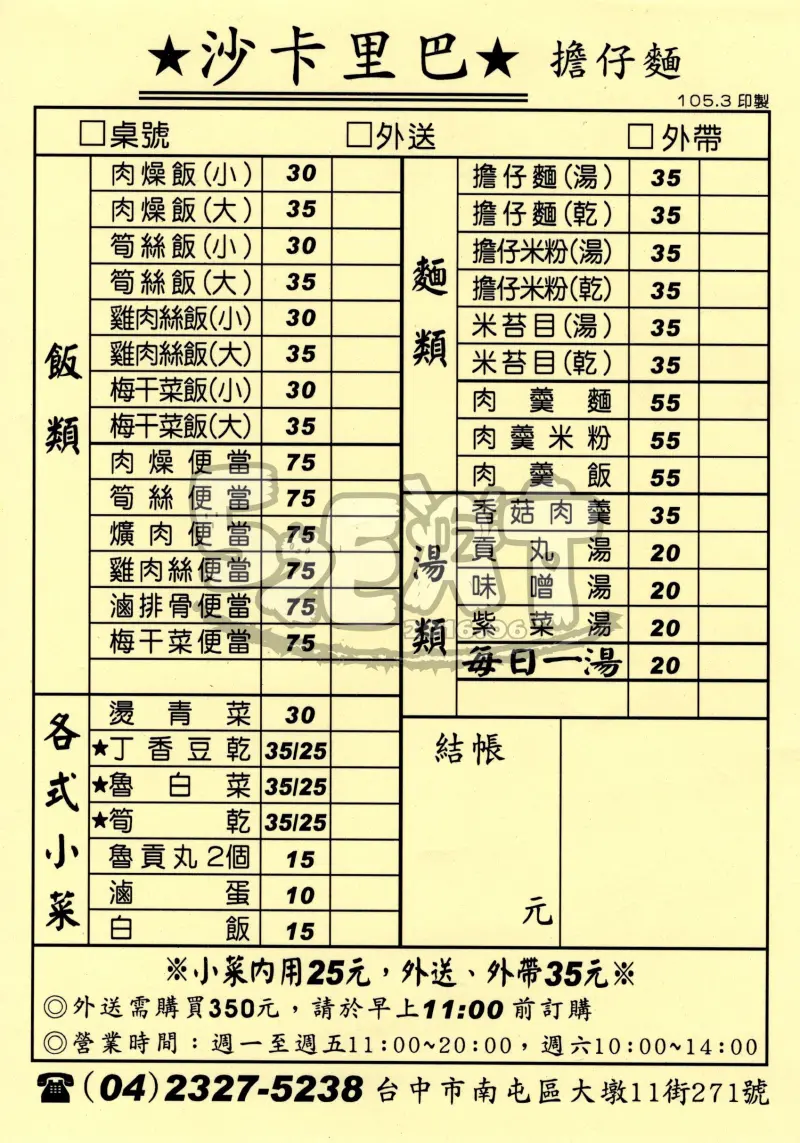 ★沙卡里巴★ 擔仔麵
105.3 印製
□桌號 □外送 □外帶
飯類
肉燥飯(小) 30
肉燥飯(大) 35
筍絲飯(小) 30
筍絲飯(大) 35
雞肉絲飯(小) 30
雞肉絲飯(大) 35
梅干菜飯(小) 30
梅干菜飯(大) 35
肉燥便當 75
筍絲便當 75
爌肉便當 75
雞肉絲便當 75
滷排骨便當 75
梅干菜便當 75
各式小菜
燙青菜 30
★丁香豆乾 35/25
★魯白菜 35/25
★筍乾 35/25
魯貢丸2個 15
滷蛋 10
白飯 15
麵類
擔仔麵(湯) 35
擔仔麵(乾) 35
擔仔米粉(湯) 35
擔仔米粉(乾) 35
米苔目(湯) 35
米苔目(乾) 35
肉羹麵 55
肉羹米粉 55
肉羹飯 55
湯類
香菇肉羹 35
貢丸湯 20
味噌湯 20
紫菜湯 20
每日一湯 20
結帳
元
※小菜內用25元，外送、外帶35元※
◎外送需購買350元，請於早上11:00前訂購
◎營業時間：週一至週五11:00~20:00，週六10:00~14:00
☎(04)2327-5238 台中市南屯區大墩11街271號
SEAT
2016.06